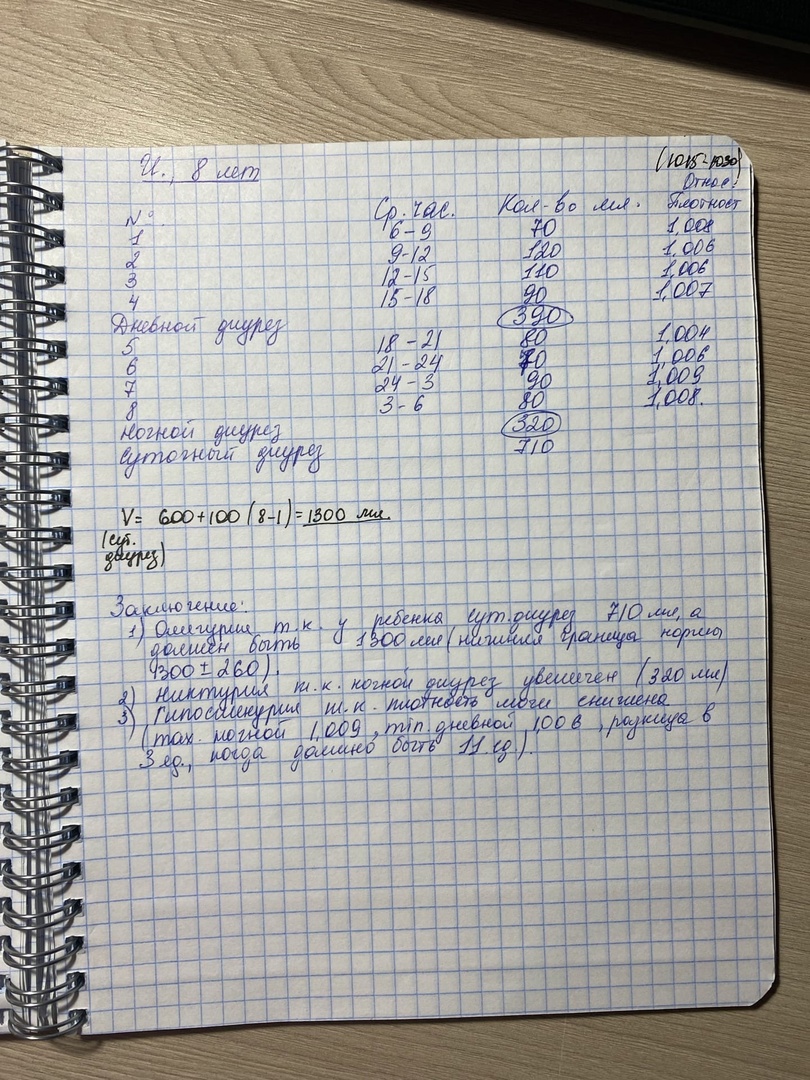 И., 8 лет
(1015-1030)
№. Ср. час. Кол-во мл. Относ. Плотност
1 6-9 70 1,008
2 9-12 120 1,006
3 12-15 110 1,006
4 15-18 90 1,007
Дневной диурез 390
5 18-21 80 1,004
6 21-24 70 1,006
7 24-3 90 1,009
8 3-6 80 1,008.
Ночной диурез 320
Суточный диурез 710
V= 600+100 (8-1)=1300 мл.
(сут.
диурез)
Заключение:
1) Олигурия т.к. у ребенка сут.диурез 710 мл, а
должен быть 1300 мл (нижняя граница нормы
1300 ± 260).
2) Никтурия т.к. ночной диурез увеличен (320 мл)
3) Гипостенурия т.к. плотность мочи снижена
(max. ночной 1,009, min. дневной 1,006, разница в
3 ед., когда должно быть 11 ед.).